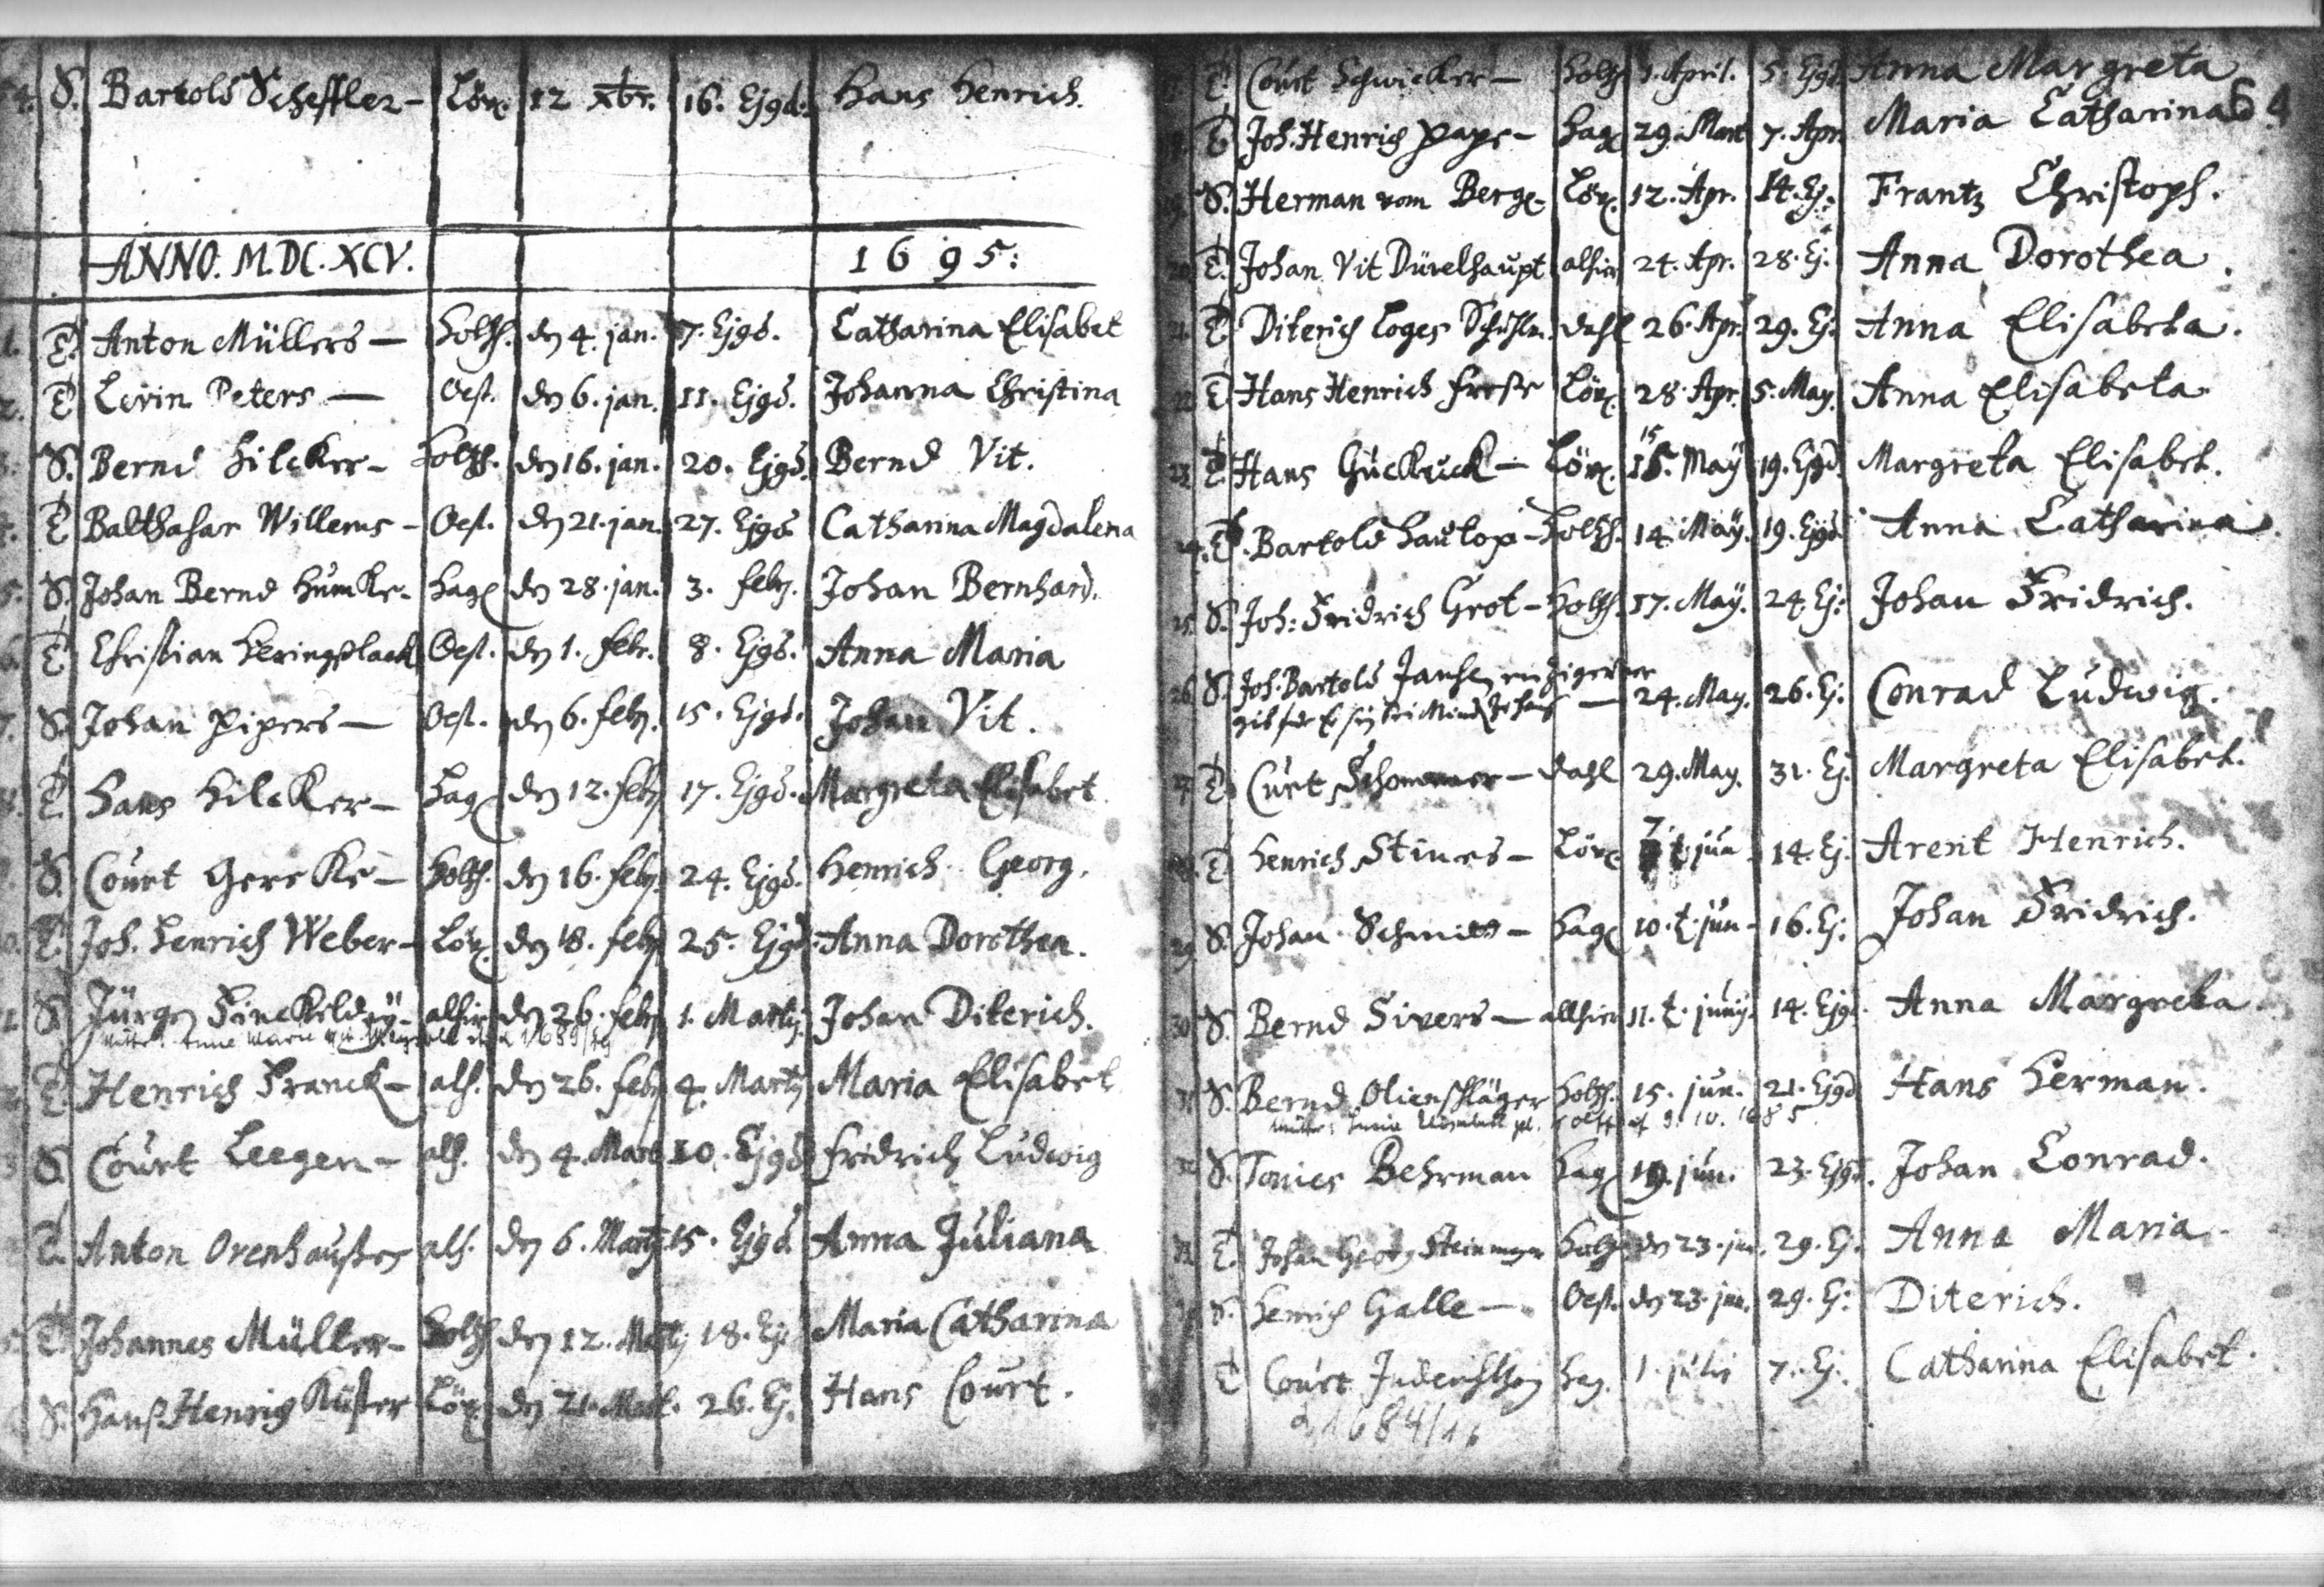 54. S. Bartold Scheffler – Löw. 12 xbr. 16. Ejgd. Hans Henrich.
ANNO. M.DC.XCV. 1695:
1. T. Anton Müllers – Holtzh. den 4. jan. 7. Ejgd. Catharina Elisabet
2. T. Levin Peters – Oest. den 6. jan. 11. Ejgd. Johanna Christina
3. S. Bernd Hilcker – Holtzh. den 16. jan. 20. Ejgd. Bernd Vit.
4. T. Balthasar Willems – Oest. den 21. jan. 27. Ejgd. Catharina Magdalena
5. S. Johan Bernd Humke – Hag. den 28. jan. 3. febr. Johan Bernhard.
6. T. Christian Heringslack Oest. den 1. febr. 8. Ejgd. Anna Maria
7. S. Johan Pipers – Oest. den 6. febr. 15. Ejgd. Johan Vit.
8. T. Hans Hilcker – Hag. den 12. febr. 17. Ejgd. Margreta Elisabet.
9. S. Court Gereke – Holtzh. den 16. febr. 24. Ejgd. Henrich Georg.
10. T. Joh. Henrich Weber – Löw. den 18. febr. 25. Ejgd. Anna Dorothea.
11. S. Jürgen Finckeldey – alhir den 26. febr. 1. Martij Johan Diterich.
1689
12. T. Henrich Franck – alh. den 26. febr. 4. Martij Maria Elisabet
13. S. Court Leegen – alh. den 4. Mart. 10. Ejgd. Fridrich Ludwig
T. Anton Ovenhausen alh. den 6. Martij 15. Ejgd. Anna Juliana
T. Johannes Müller – Holtzh. den 12. Martij 18. Ej. Maria Catharina
S. Hans Henrich Küster Löw. den 21. Mart. 26. Ej. Hans Court.
64
T. Court Schwicker – Holtzh. 1. April. 5. Ejgd. Anna Margreta
T. Joh. Henrich Pape – Hag. 29. Mart 7. Apr. Maria Catharina
19. S. Herman vom Berge – Löw. 12. Apr. 14. Ej. Frantz Christoph.
20. T. Johan Vit Düvelhaupt alhir 24. Apr. 28. Ej. Anna Dorothea.
21. T. Diterich Loges Dahl 26. Apr. 29. Ej. Anna Elisabeta.
22. T. Hans Henrich Frese Löw. 28. Apr. 5. May. Anna Elisabeta.
23. T. Hans Guckuck – Löw. 15. May 19. Ejgd. Margreta Elisabet.
24. T. Bartold Haulop – Holtzh. 14. May. 19. Ejgd. Anna Catharina.
25. S. Joh: Fridrich Grot – Holtzh. 17. May. 24. Ej: Johan Fridrich.
26. S. Joh. Bartold Jansen ein Zigeuner
– 24. May. 26. Ej: Conrad Ludwig.
27. T. Curt Schommer – Dahl 29. May. 31. Ej. Margreta Elisabet.
28. T. Henrich Stiners – Löw. 7. t. jun. 14. Ej. Arent Henrich.
29. S. Johan Schmitt – Hag. 10. t. jun. 16. Ej: Johan Fridrich.
30. S. Bernd Sivers – allhir 11. t. junij. 14. Ejgd. Anna Margreta.
31. S. Bernd Olienschläger Holtzh. 15. jun. 21. Ejgd. Hans Herman.
9. 10. 1685
32. S. Tonies Behrman Hag. 19. jun. 23. Ejgd. Johan Conrad.
33. T. Johan Georg Steinmeyer Holtzh. den 23. jun. 29. Ej. Anna Maria.
34. S. Henrich Galle – Oest. den 23. jun. 29. Ej: Diterich.
T. Court Hag. 1. julij 7. Ej. Catharina Elisabet.
1684/16